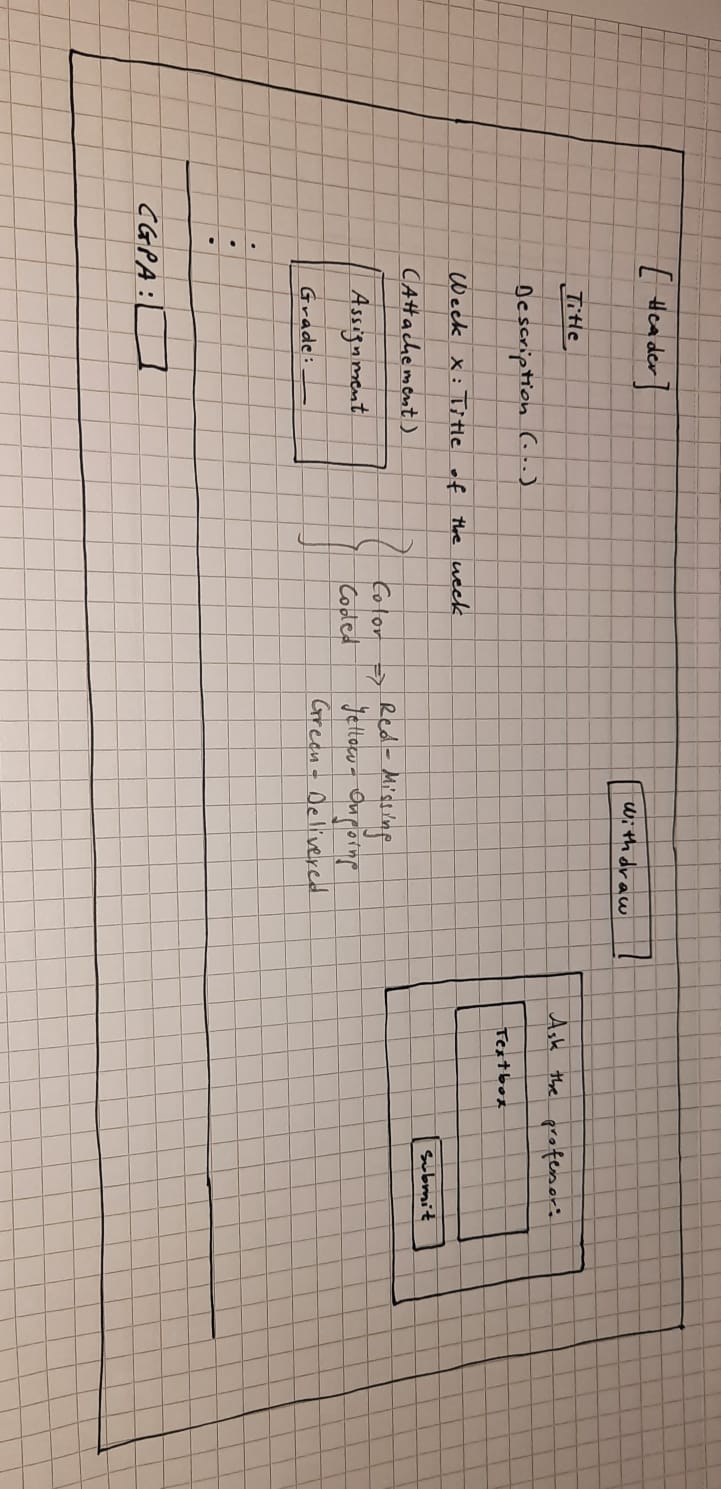 [Header]
Withdraw
Title
Description (...)
Ask the professor:
Textbox
Submit
Week x: Title of the week
(Attachement)
Assignment
Grade: __
Color => Red - Missing
Coded Yellow - Ongoing
Green - Delivered
CGPA: